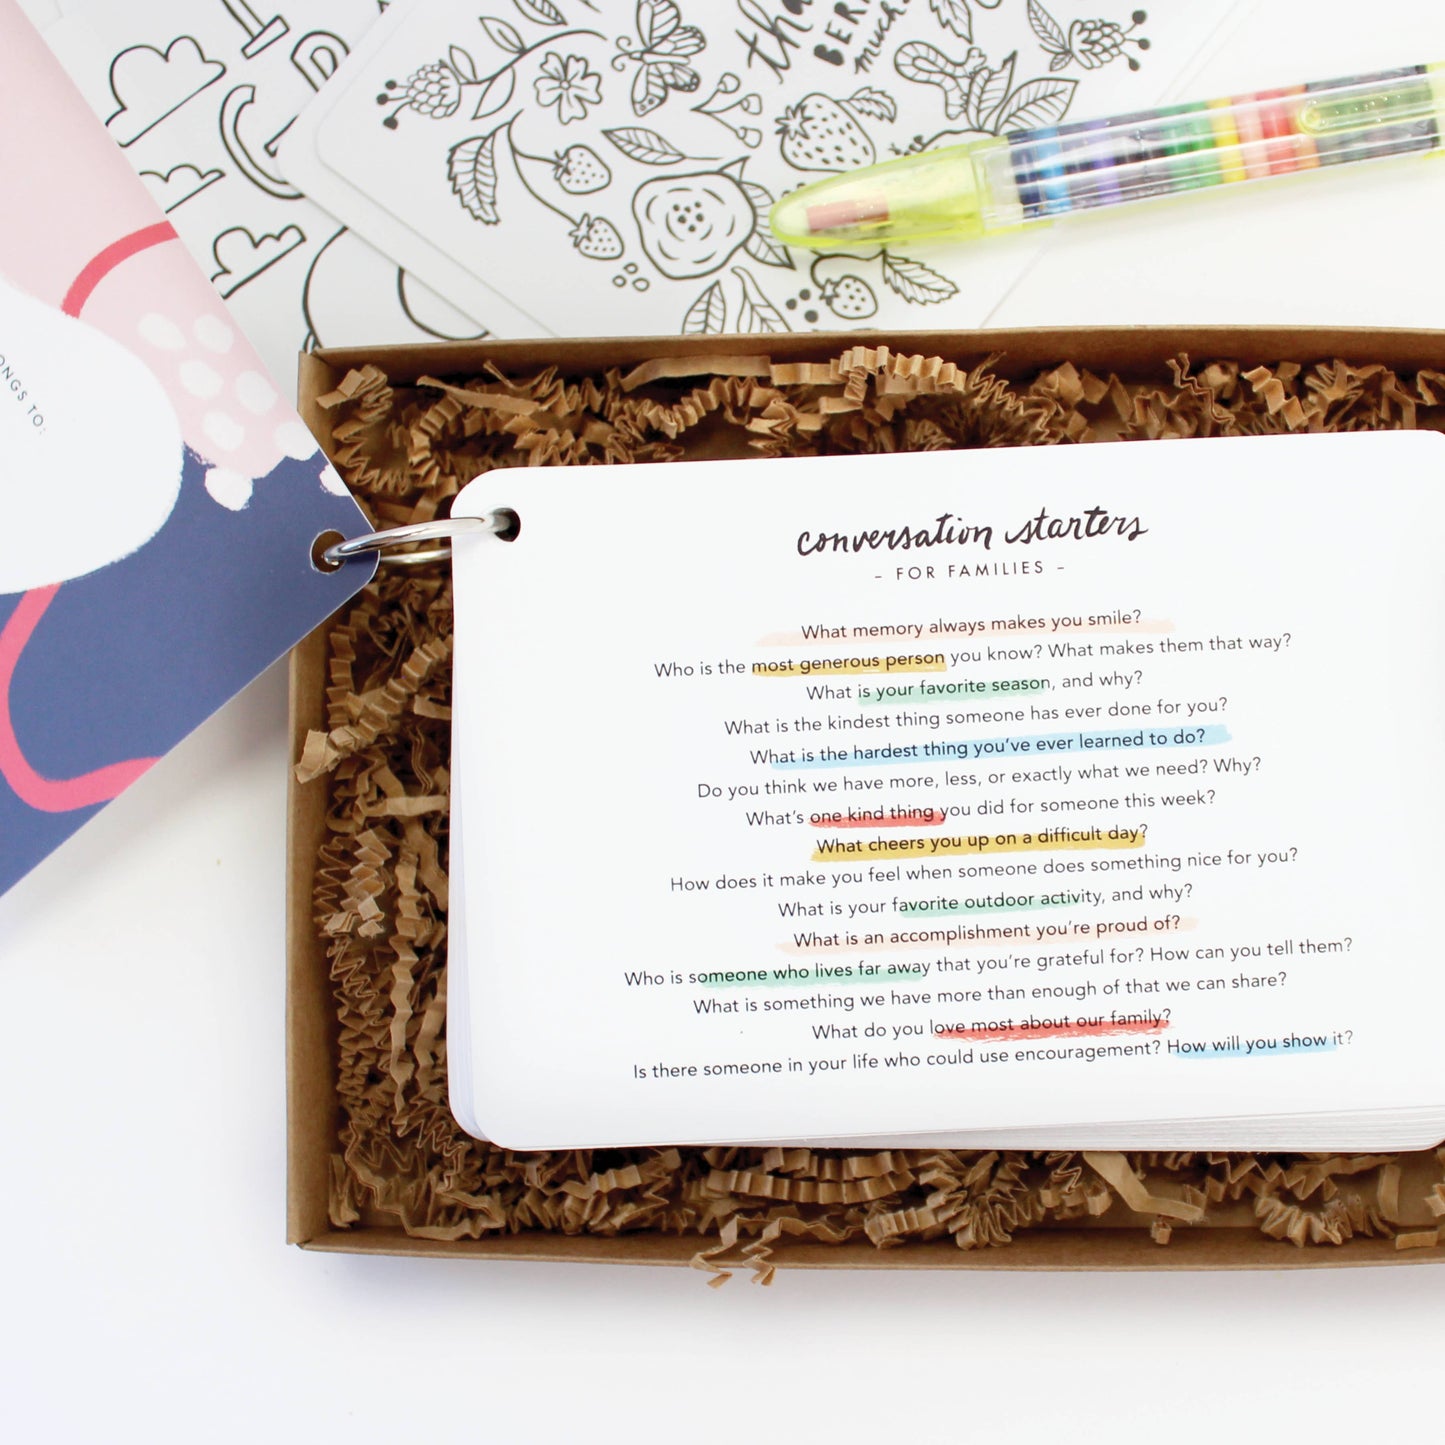 BER
much
ONGS TO:
conversation starters
- FOR FAMILIES -
What memory always makes you smile?
Who is the most generous person you know? What makes them that way?
What is your favorite season, and why?
What is the kindest thing someone has ever done for you?
What is the hardest thing you've ever learned to do?
Do you think we have more, less, or exactly what we need? Why?
What's one kind thing you did for someone this week?
What cheers you up on a difficult day?
How does it make you feel when someone does something nice for you?
What is your favorite outdoor activity, and why?
What is an accomplishment you're proud of?
Who is someone who lives far away that you're grateful for? How can you tell them?
What is something we have more than enough of that we can share?
What do you love most about our family?
Is there someone in your life who could use encouragement? How will you show it?